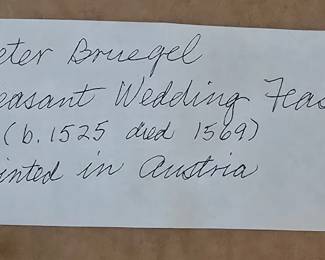 eter Bruegel
easant Wedding Feas
(b. 1525 died 1569)
inted in Austria